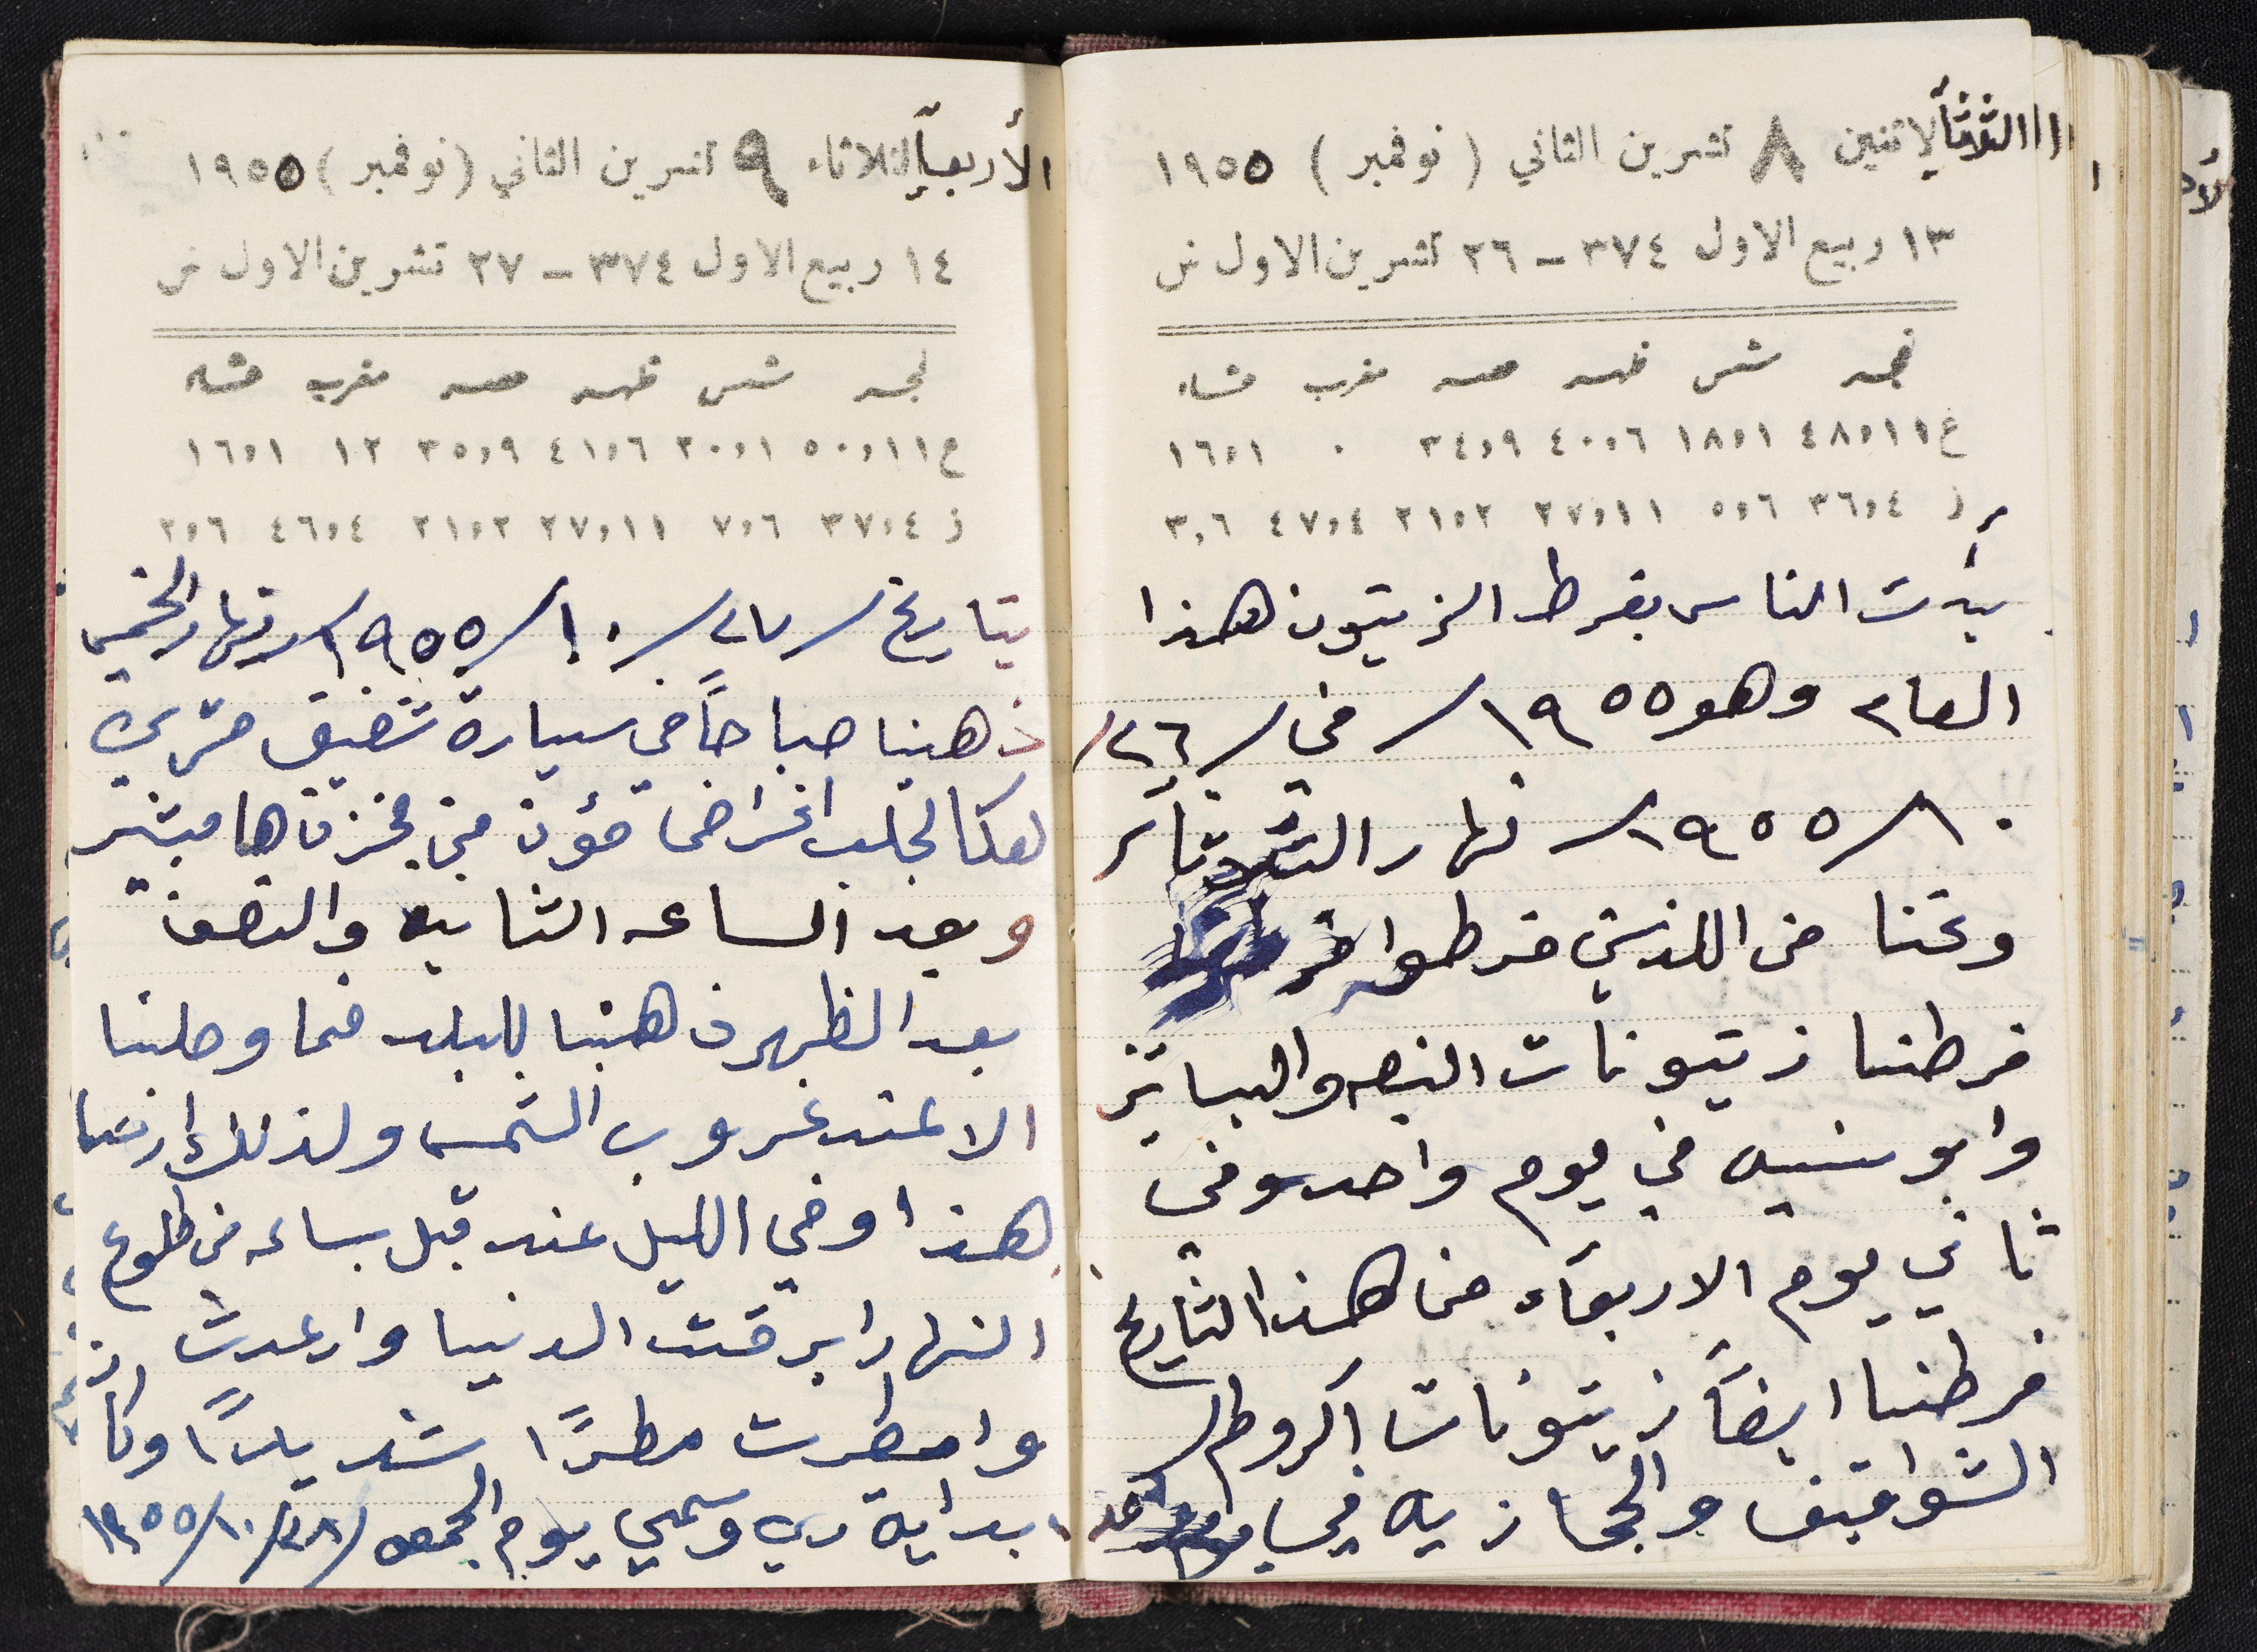 الثلاثاء الاثنين ٨ تشرين الثاني (نوفمبر) ١٩٥٥
١٣ ربيع الاول ٣٧٤ - ٢٦ تشرين الاول ش
فجر شمس ظهر عصر مغرب عشاء
غ ٤٨،١١ ١٨،١ ٤٠،٦ ٣٤،٩ ٠ ١٦،١
ز ٣٦،٤ ٥،٦ ٢٧،١١ ٢١،٢ ٤٧،٤ ٣،٦
بدئت الناس بفرط الزيتون هذا
العام وهو ١٩٥٥/ في /٢٦/
١٠/١٩٥٥/ نهار الثلاثاء
ونحنا من اللذين فرطوا
فرطنا زيتونات النبعه والبياتز
وابو سنيه في يوم واحد وفي
ثاني يوم الاربعاء من هذا التاريخ
فرطنا ايضاً زيتونات الروط
الشواقيف والحجازيه في
الأربعاء الثلاثاء ٩ تشرين الثاني (نوفمبر) ١٩٥٥
١٤ ربيع الاول ٣٧٤ - ٢٧ تشرين الاول ش
فجر شمس ظهر عصر مغرب عشاء
غ ٥٠،١١ ٢٠،١ ٤١،٦ ٣٥،٩ ١٢ ١٦،١
ز ٣٧،٤ ٧،٦ ٢٧،١١ ٢١،٢ ٤٦،٤ ٢،٦
بتاريخ /٢٧/١٠/١٩٥٥/ نهار الخميس
ذهبنا صباحاً في سيارة شفيق متري
لعكا لجلب اغراض مؤن من مخزن
وبعد الساعه الثانيه والنصف
بعد الظهر ذهبنا للبلد فما وصلنا
الا عند غروب الشمس ولذلك
هذا وفي الليل عند قبل ساعه من طلوع
النهار ابرقت الدنيا وارعدت
وامطرت مطرًا شديدًا وكان
ابداية ري وسمي يوم الجمعه /٢٨/١٠/١٩٥٥